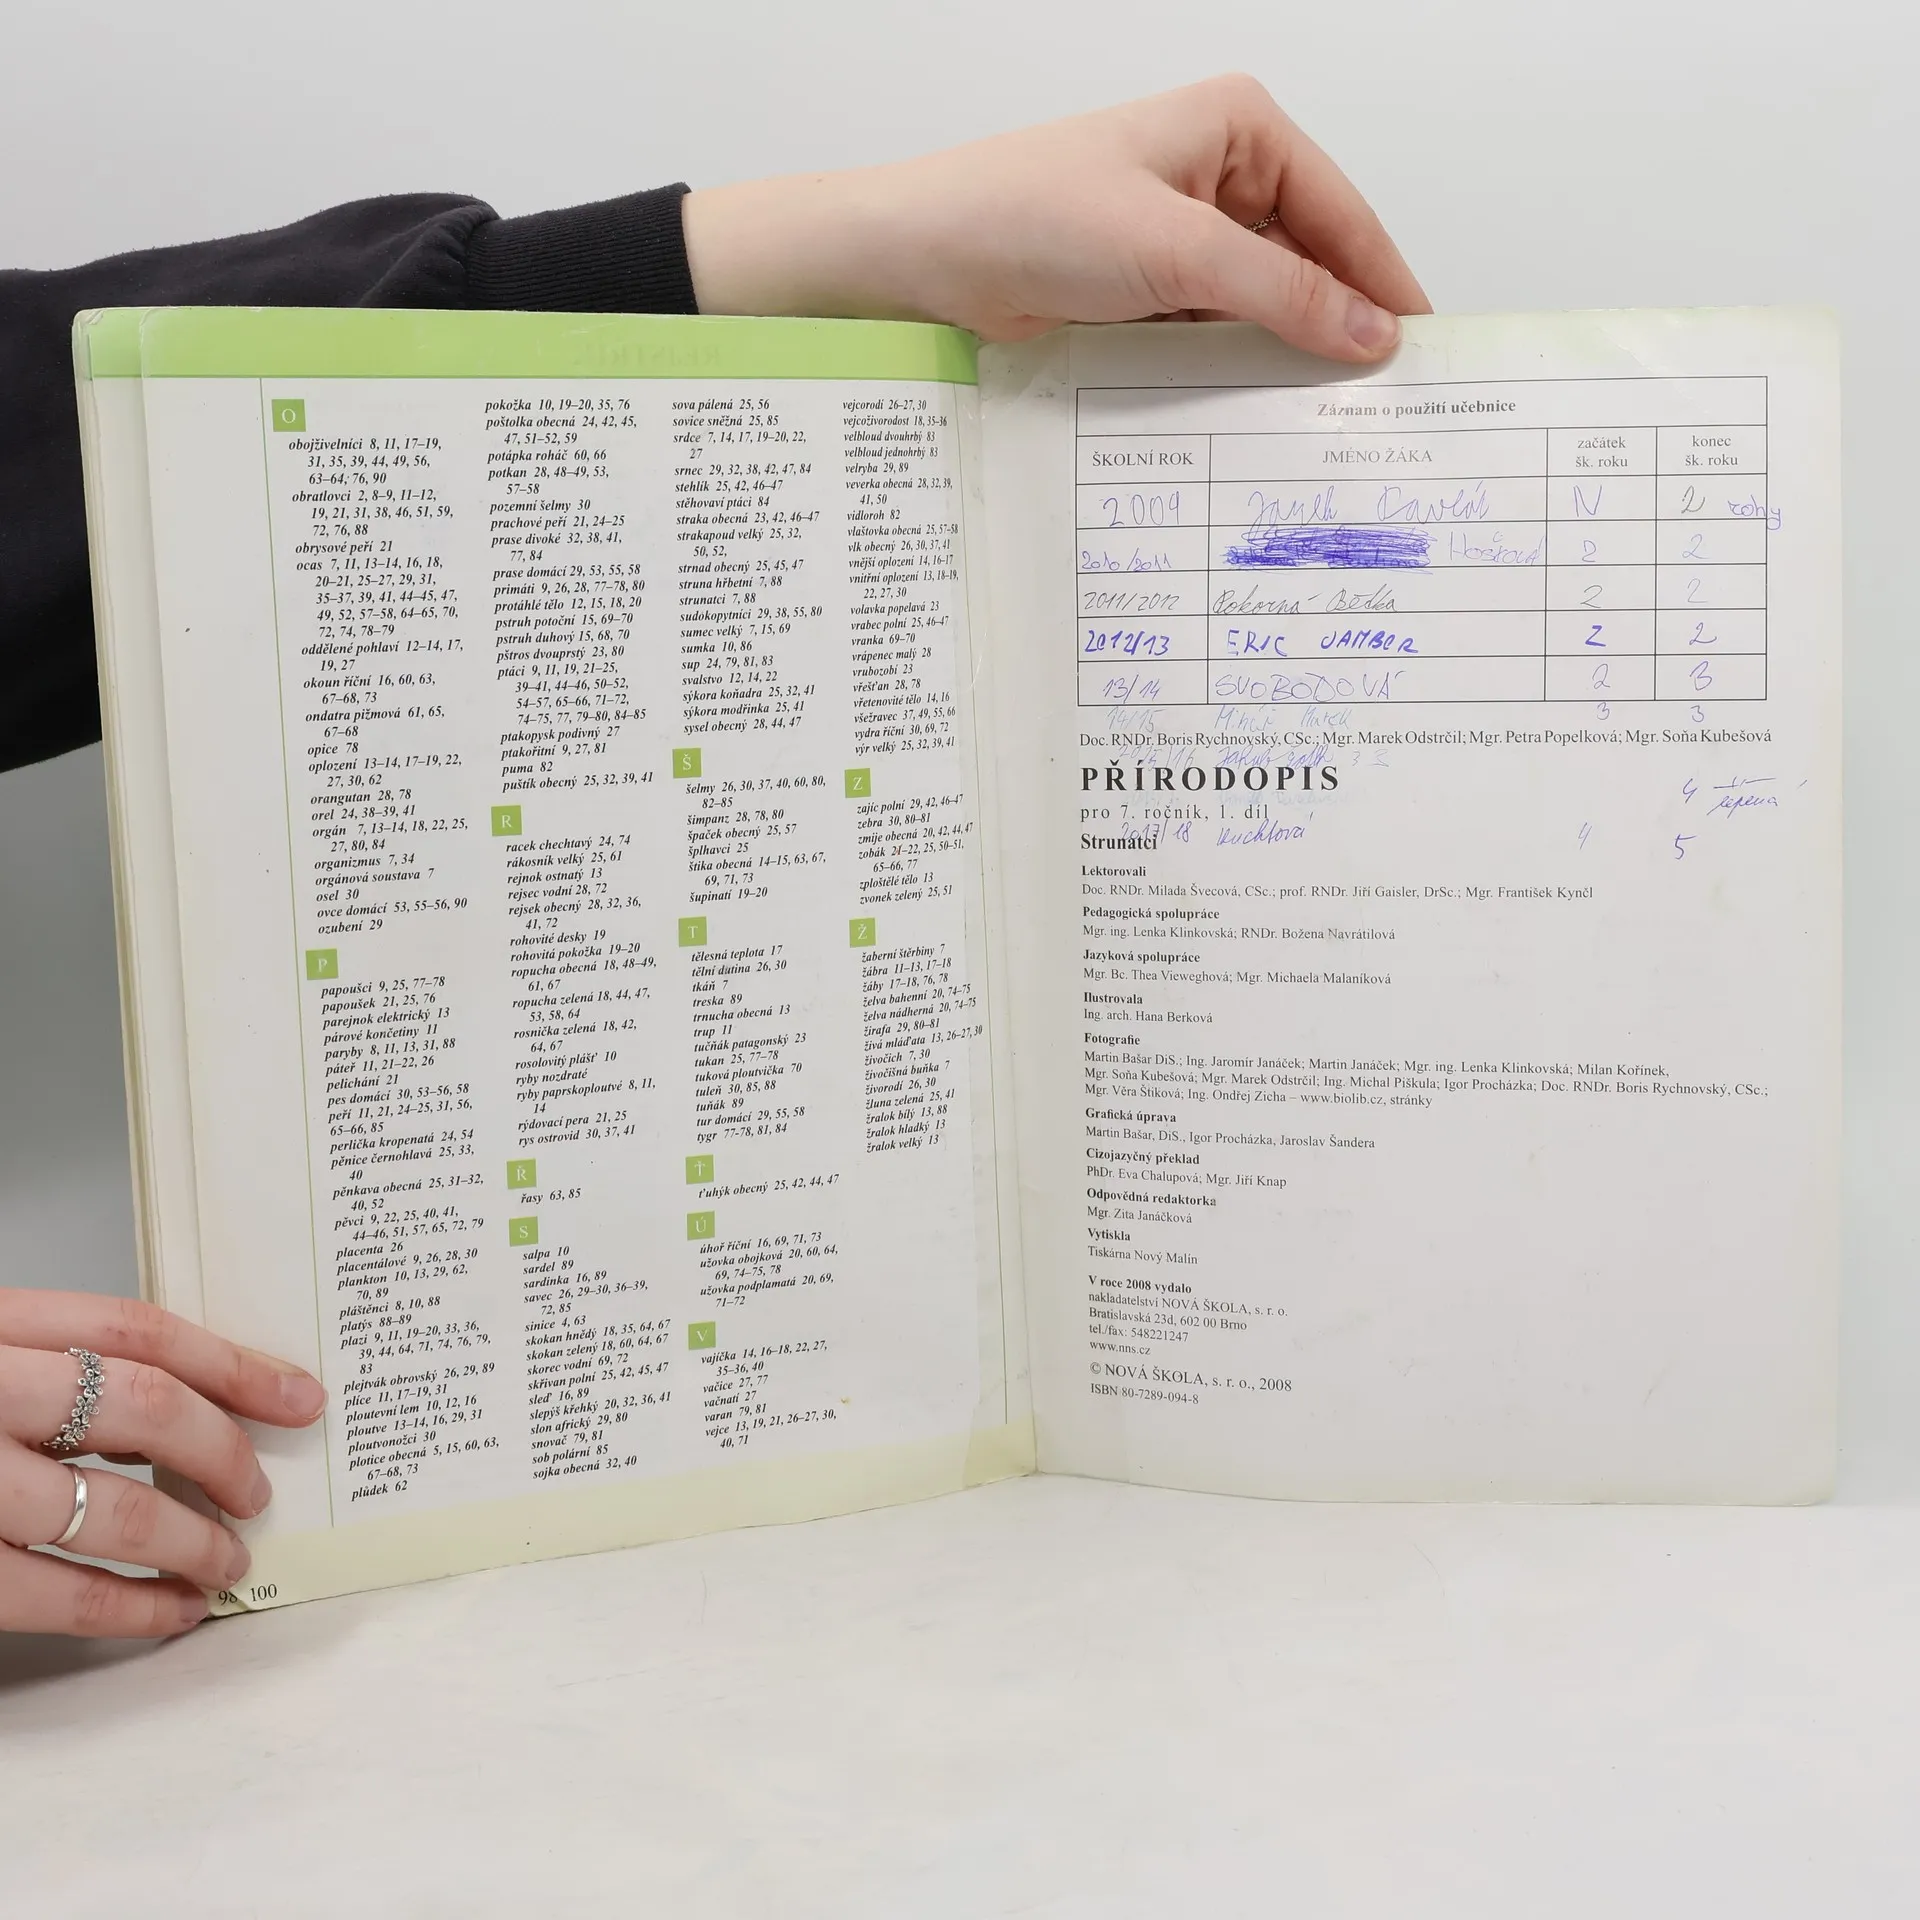 O
obojživelníci 8, 11, 17–19,
31, 35, 39, 44, 49, 56,
63–64, 76, 90
obratlovci 2, 8–9, 11–12,
19, 21, 31, 38, 46, 51, 59,
72, 76, 88
obrysové peří 21
ocas 7, 11, 13–14, 16, 18,
20–21, 25–27, 29, 31,
35–37, 39, 41, 44–45, 47,
49, 52, 57–58, 64–65, 70,
72, 74, 78–79
oddělené pohlaví 12–14, 17,
19, 27
okoun říční 16, 60, 63,
67–68, 73
ondatra pižmová 61, 65,
67–68
opice 78
oplození 13–14, 17–19, 22,
27, 30, 62
orangutan 28, 78
orel 24, 38–39, 41
orgán 7, 13–14, 18, 22, 25,
27, 80, 84
organizmus 7, 34
orgánová soustava 7
osel 30
ovce domácí 53, 55–56, 90
ozubení 29
P
papoušci 9, 25, 77–78
papoušek 21, 25, 76
parejnok elektrický 13
párové končetiny 11
paryby 8, 11, 13, 31, 88
páteř 11, 21–22, 26
pelichání 21
pes domácí 30, 53–56, 58
peří 11, 21, 24–25, 31, 56,
65–66, 85
perlička kropenatá 24, 54
pěnice černohlavá 25, 33,
40
pěnkava obecná 25, 31–32,
40, 52
pěvci 9, 22, 25, 40, 41,
44–46, 51, 57, 65, 72, 79
placenta 26
placentálové 9, 26, 28, 30
plankton 10, 13, 29, 62,
70, 89
pláštěnci 8, 10, 88
platýs 88–89
plazi 9, 11, 19–20, 33, 36,
39, 44, 64, 71, 74, 76, 79,
83
plejtvák obrovský 26, 29, 89
plíce 11, 17–19, 31
ploutevní lem 10, 12, 16
ploutve 13–14, 16, 29, 31
ploutvonožci 30
plotice obecná 5, 15, 60, 63,
67–68, 73
plůdek 62
pokožka 10, 19–20, 35, 76
poštolka obecná 24, 42, 45,
47, 51–52, 59
potápka roháč 60, 66
potkan 28, 48–49, 53,
57–58
pozemní šelmy 30
prachové peří 21, 24–25
prase divoké 32, 38, 41,
77, 84
prase domácí 29, 53, 55, 58
primáti 9, 26, 28, 77–78, 80
protáhlé tělo 12, 15, 18, 20
pstruh potoční 15, 69–70
pstruh duhový 15, 68, 70
pštros dvouprstý 23, 80
ptáci 9, 11, 19, 21–25,
39–41, 44–46, 50–52,
54–57, 65–66, 71–72,
74–75, 77, 79–80, 84–85
ptakopysk podivný 27
ptakořitní 9, 27, 81
puma 82
puštík obecný 25, 32, 39, 41
R
racek chechtavý 24, 74
rákosník velký 25, 61
rejnok ostnatý 13
rejsec vodní 28, 72
rejsek obecný 28, 32, 36,
41, 72
rohovité desky 19
rohovitá pokožka 19–20
ropucha obecná 18, 48–49,
61, 67
ropucha zelená 18, 44, 47,
53, 58, 64
rosnička zelená 18, 42,
64, 67
rosolovitý plášť 10
ryby nozdraté
ryby paprskoploutvé 8, 11,
14
rýdovací pera 21, 25
rys ostrovid 30, 37, 41
Ř
řasy 63, 85
S
salpa 10
sardel 89
sardinka 16, 89
savec 26, 29–30, 36–39,
72, 85
sinice 4, 63
skokan hnědý 18, 35, 64, 67
skokan zelený 18, 60, 64, 67
skorec vodní 69, 72
skřivan polní 25, 42, 45, 47
sleď 16, 89
slepýš křehký 20, 32, 36, 41
slon africký 29, 80
snovač 79, 81
sob polární 85
sojka obecná 32, 40
sova pálená 25, 56
sovice sněžná 25, 85
srdce 7, 14, 17, 19–20, 22,
27
srnec 29, 32, 38, 42, 47, 84
stehlík 25, 42, 46–47
stěhovaví ptáci 84
straka obecná 23, 42, 46–47
strakapoud velký 25, 32,
50, 52,
strnad obecný 25, 45, 47
struna hřbetní 7, 88
strunatci 7, 88
sudokopytníci 29, 38, 55, 80
sumec velký 7, 15, 69
sumka 10, 86
sup 24, 79, 81, 83
svalstvo 12, 14, 22
sýkora koňadra 25, 32, 41
sýkora modřinka 25, 41
sysel obecný 28, 44, 47
Š
šelmy 26, 30, 37, 40, 60, 80,
82–85
šimpanz 28, 78, 80
špaček obecný 25, 57
šplhavci 25
štika obecná 14–15, 63, 67,
69, 71, 73
šupinatí 19–20
T
tělesná teplota 17
tělní dutina 26, 30
tkáň 7
treska 89
trnucha obecná 13
trup 11
tučňák patagonský 23
tukan 25, 77–78
tuková ploutvička 70
tuleň 30, 85, 88
tuňák 89
tur domácí 29, 55, 58
tygr 77-78, 81, 84
Ť
ťuhýk obecný 25, 42, 44, 47
Ú
úhoř říční 16, 69, 71, 73
užovka obojková 20, 60, 64,
69, 74–75, 78
užovka podplamatá 20, 69,
71–72
V
vajíčka 14, 16–18, 22, 27,
35–36, 40
vačice 27, 77
vačnatí 27
varan 79, 81
vejce 13, 19, 21, 26–27, 30,
40, 71
vejcorodí 26–27, 30
vejcoživorodost 18, 35-36
velbloud dvouhrbý 83
velbloud jednohrbý 83
velryba 29, 89
veverka obecná 28, 32, 39,
41, 50
vidloroh 82
vlaštovka obecná 25, 57–58
vlk obecný 26, 30, 37, 41
vnější oplození 14, 16-17
vnitřní oplození 13, 18-19,
22, 27, 30
volavka popelavá 23
vrabec polní 25, 46-47
vranka 69–70
vrápenec malý 28
vrubozobí 23
vřešťan 28, 78
vřetenovité tělo 14, 16
všežravec 37, 49, 55, 66
vydra říční 30, 69, 72
výr velký 25, 32, 39, 41
Z
zajíc polní 29, 42, 46-47
zebra 30, 80–81
zmije obecná 20, 42, 44, 47
zobák 21–22, 25, 50–51,
65–66, 77
zploštělé tělo 13
zvonek zelený 25, 51
Ž
žaberní štěrbiny 7
žábra 11–13, 17–18
žáby 17–18, 76, 78
želva bahenní 20, 74–75
želva nádherná 20, 74–75
žirafa 29, 80–81
živá mláďata 13, 26–27, 30
živočich 7, 30
živočišná buňka 7
živorodí 26, 30
žluna zelená 25, 41
žralok bílý 13, 88
žralok hladký 13
žralok velký 13
98 100
Záznam o použití učebnice
ŠKOLNÍ ROK JMÉNO ŽÁKA začátek šk. roku konec šk. roku
2009 N 2 rohy
2010/2011 Hošková 2 2
2011/2012 Pokorná Bětka 2 2
2012/13 ERIC JAMBOR 2 2
13/14 SVOBODOVÁ 2 3
14/15 Marek 3 3
Doc. RNDr. Boris Rychnovský, CSc.; Mgr. Marek Odstrčil; Mgr. Petra Popelková; Mgr. Soňa Kubešová
2015/16 Jakub 3 3
PŘÍRODOPIS
4 lepená
pro 7. ročník, 1. díl
2017/18 Kuchtová 4 5
Strunatci
Lektorovali
Doc. RNDr. Milada Švecová, CSc.; prof. RNDr. Jiří Gaisler, DrSc.; Mgr. František Kynčl
Pedagogická spolupráce
Mgr. ing. Lenka Klinkovská; RNDr. Božena Navrátilová
Jazyková spolupráce
Mgr. Bc. Thea Vieweghová; Mgr. Michaela Malaníková
Ilustrovala
Ing. arch. Hana Berková
Fotografie
Martin Bašar DiS.; Ing. Jaromír Janáček; Martin Janáček; Mgr. ing. Lenka Klinkovská; Milan Kořínek,
Mgr. Soňa Kubešová; Mgr. Marek Odstrčil; Ing. Michal Piškula; Igor Procházka; Doc. RNDr. Boris Rychnovský, CSc.;
Mgr. Věra Štiková; Ing. Ondřej Zicha – www.biolib.cz, stránky
Grafická úprava
Martin Bašar, DiS., Igor Procházka, Jaroslav Šandera
Cizojazyčný překlad
PhDr. Eva Chalupová; Mgr. Jiří Knap
Odpovědná redaktorka
Mgr. Zita Janáčková
Vytiskla
Tiskárna Nový Malín
V roce 2008 vydalo
nakladatelství NOVÁ ŠKOLA, s. r. o.
Bratislavská 23d, 602 00 Brno
tel./fax: 548221247
www.nns.cz
© NOVÁ ŠKOLA, s. r. o., 2008
ISBN 80-7289-094-8